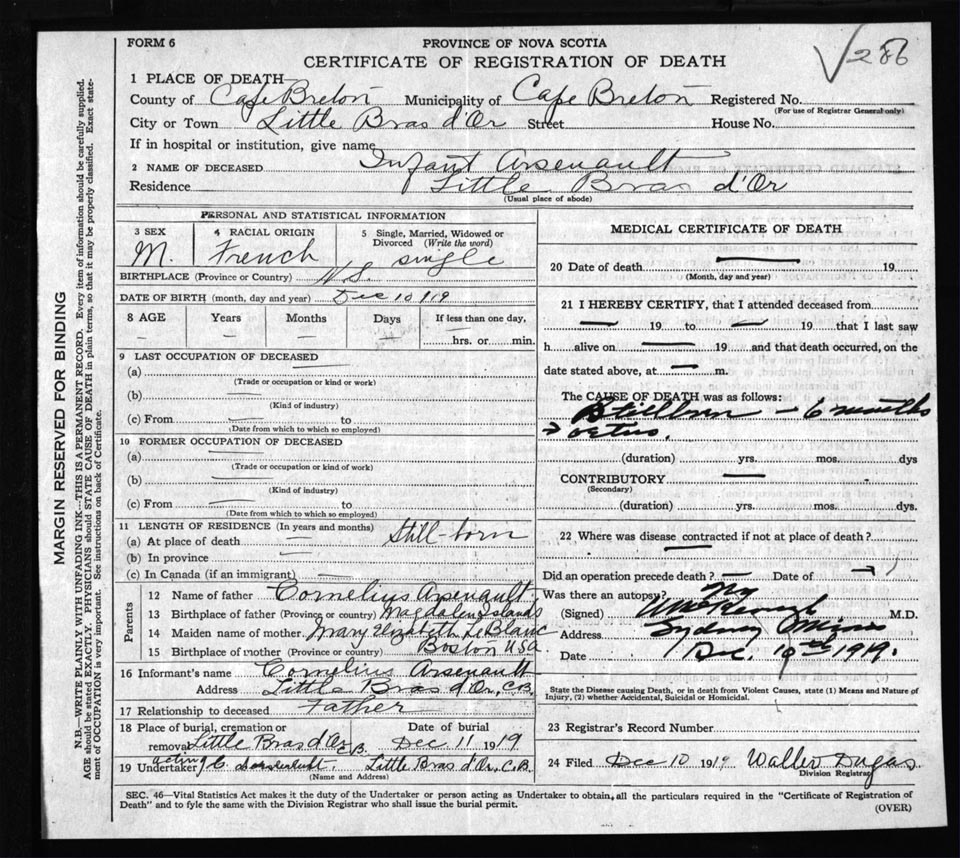 FORM 6
PROVINCE OF NOVA SCOTIA
CERTIFICATE OF REGISTRATION OF DEATH
√286
1 PLACE OF DEATH—
County of Cape Breton Municipality of Cape Breton Registered No.
(For use of Registrar General only)
City or Town Little Bras d'Or Street House No.
If in hospital or institution, give name
2 NAME OF DECEASED Infant Arsenault
Residence Little Bras d'Or
(Usual place of abode)
PERSONAL AND STATISTICAL INFORMATION
3 SEX 4 RACIAL ORIGIN 5 Single, Married, Widowed or
Divorced (Write the word)
M. French single
BIRTHPLACE (Province or Country) N.S.
DATE OF BIRTH (month, day and year) Dec 10/19
8 AGE Years Months Days If less than one day,
— — — — hrs. or min.
9 LAST OCCUPATION OF DECEASED
(a) —
(Trade or occupation or kind or work)
(b) —
(Kind of industry)
(c) From — to
(Date from which to which so employed)
10 FORMER OCCUPATION OF DECEASED
(a) —
(Trade or occupation or kind of work)
(b) —
(Kind of industry)
(c) From — to
(Date from which to which so employed)
11 LENGTH OF RESIDENCE (In years and months)
(a) At place of death — Still-born
(b) In province —
(c) In Canada (if an immigrant) —
Parents
12 Name of father Cornelius Arsenault
13 Birthplace of father (Province or country) Magdalen Islands
14 Maiden name of mother Mary Elizabeth LeBlanc
15 Birthplace of mother (Province or country) Boston USA
16 Informant's name Cornelius Arsenault
Address Little Bras d'Or, C.B.
17 Relationship to deceased Father
18 Place of burial, cremation or Date of burial
removal Little Bras d'Or C.B. Dec 11 1919
19 Undertaker acting C. Little Bras d'Or, C.B.
(Name and Address)
MEDICAL CERTIFICATE OF DEATH
20 Date of death — 19
(Month, day and year)
21 I HEREBY CERTIFY, that I attended deceased from
— 19 to — 19 that I last saw
h alive on — 19 and that death occurred, on the
date stated above, at — m.
The CAUSE OF DEATH was as follows:
Stillborn — 6 months
(duration) yrs. mos. dys
CONTRIBUTORY —
(Secondary)
(duration) yrs. mos. dys.
22 Where was disease contracted if not at place of death?
—
Did an operation precede death? — Date of
Was there an autopsy? No
(Signed) M.D.
Address Sydney Mines
Date Dec. 10th 1919.
State the Disease causing Death, or in death from Violent Causes, state (1) Means and Nature of
Injury, (2) whether Accidental, Suicidal or Homicidal.
23 Registrar's Record Number
24 Filed Dec 10 1919 Walter Dugas
Division Registrar
SEC. 46—Vital Statistics Act makes it the duty of the Undertaker or person acting as Undertaker to obtain, all the particulars required in the "Certificate of Registration of
Death" and to fyle the same with the Division Registrar who shall issue the burial permit.
(OVER)
MARGIN RESERVED FOR BINDING
N.B.—WRITE PLAINLY WITH UNFADING INK—THIS IS A PERMANENT RECORD. Every item of information should be carefully supplied.
AGE should be stated EXACTLY. PHYSICIANS should STATE CAUSE OF DEATH in plain terms, so that it may be properly classified. Exact state-
ment of OCCUPATION is very important. See instructions on back of Certificate.